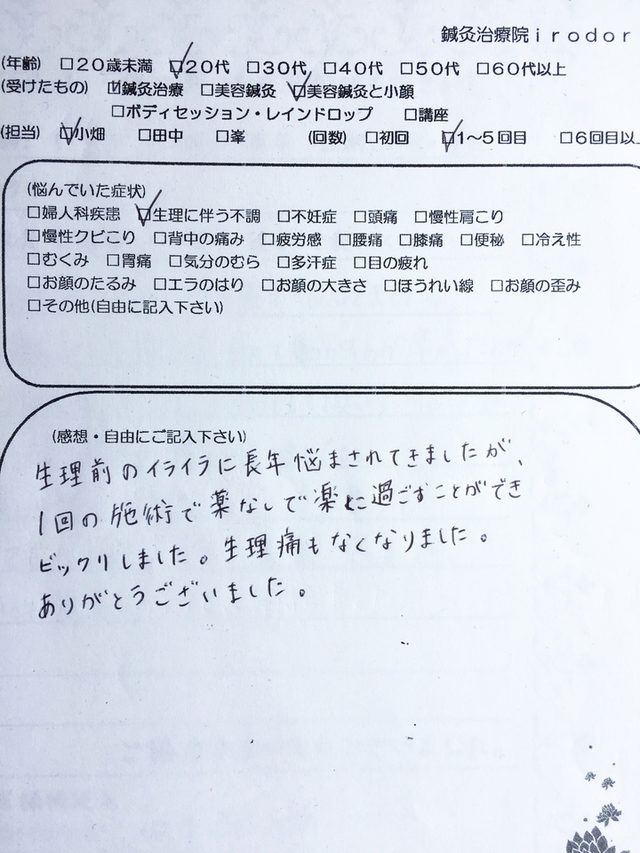 鍼灸治療院irodor
(年齢) □20歳未満 ☑20代 □30代 □40代 □50代 □60代以上
(受けたもの) ☑鍼灸治療 □美容鍼灸 ☑美容鍼灸と小顔
□ボディセッション・レインドロップ □講座
(担当) ☑小畑 □田中 □峯 (回数) □初回 ☑1～5回目 □6回目以上
(悩んでいた症状)
□婦人科疾患 ☑生理に伴う不調 □不妊症 □頭痛 □慢性肩こり
□慢性クビこり □背中の痛み □疲労感 □腰痛 □膝痛 □便秘 □冷え性
□むくみ □胃痛 □気分のむら □多汗症 □目の疲れ
□お顔のたるみ □エラのはり □お顔の大きさ □ほうれい線 □お顔の歪み
□その他(自由に記入下さい)
(感想・自由にご記入下さい)
生理前のイライラに長年悩まされてきましたが、
1回の施術で薬なしで楽に過ごすことができ
ビックリしました。生理痛もなくなりました。
ありがとうございました。